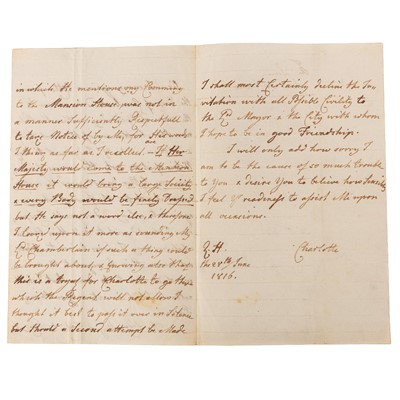 in which He mentions my Comming
to the Mansion House was not in
a manner Sufficiently Respectfull
to take Notice of by Me, for His words
I think as far as I recollect are If Her
Majesty would come to the Mansion
House it would bring a large Society
& every Body would be finely dressed
but He says not a word else, & therefore
I looked upon it more as sounding My
Ld Chamberlain if such a thing could
be brought about, & knowing also that
this is a for Charlotte to go there
which the Regent will not allow I
thought it best to pass it over in Silence
but should a Second attempt be Made
I shall most Certainly decline the In
vitation with all Possible Civility to
the Ld Mayor & the City with whom
I hope to be in good Friendship.
I will only add how sorry I
am to be the cause of so much trouble
to You & desire You to believe how
I feel Yr readiness to assist Me upon
all occasions.
Q. H. Charlotte
the 28th June
1816.